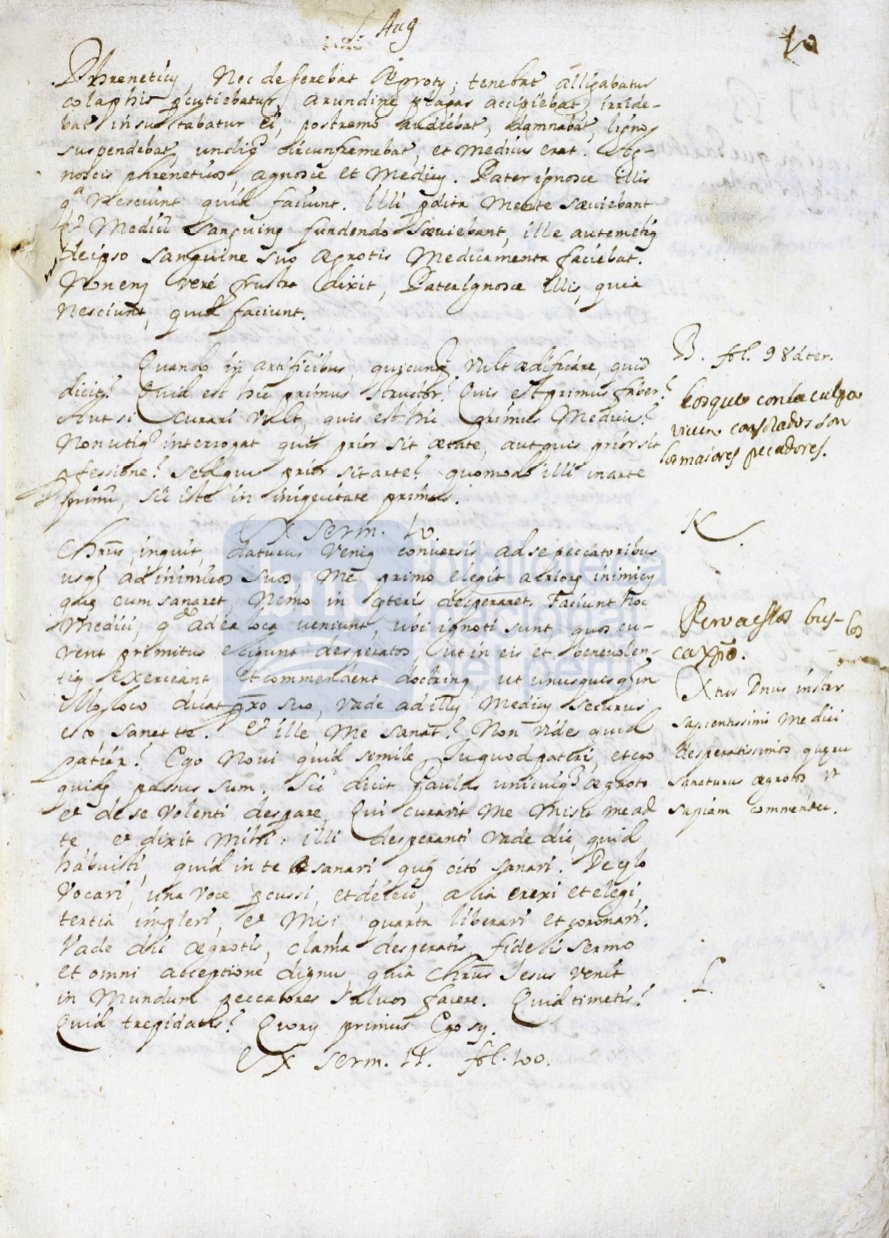 Aug
10
Phreneticus, Nec deferebat Ægrotus; tenebat alligabatur
colaphis percutiebatur, arundine plagas accipiebat, irride-
bat insultabatur ei, postremo audiebat, damnabat, ligno
suspendebat, undiq circunfremebat, et Medicus erat. Ag
noscis phreneticos, agnosce et Medicum. Pater ignosce illis
qa Nesciunt quid faciunt. Illi pdita Mente sæviebant
et Medici Sanguinem fundendo Sæviebant, ille autem etiam
de ipso sanguine suo ægrotis Medicamenta faciebat.
Non enim veré frustra dixit, Pater ignosce illis, quia
Nesciunt, quid faciunt.
Quando in artificibus quicunq Vult ædificare, quid
dicit? Quid est hic primus structor? Quis est primus faber?
Aut si Curari Vult, quis est hic primus Medicus?
Non utiq interrogat quis prior sit ætate, aut quis prior sit
pfessione? sed quis prior sit arte? quomodo illi in arte
primi, sic iste in iniquitate primus.
Ex Serm. 10
Chrus, inquit, daturus Veniam conversis ad se peccatoribus
usq ad inimicos suos, Me primo elegit acriorem inimicum
quem cum sanaret, Nemo in cæteris desperaret. Faciunt hoc
Medici, qn ad ea loca veniunt, ubi ignoti sunt quos cu-
rent primitus eligunt desperatos ut in eis et benevolen-
tiam exerceant et commendent doctrinam, ut unusquisq in
illo loco dicat pxo suo, vade ad illum Medicum securus
esto sanet te. Et ille Me sanat? Non vides quid
patiar? Ego Noui quid simile, quod pateris, et ego
quidem passus sum. Sic dicit Paulus unicuiq ægroto
et de se Volenti despare, Qui curavit me Misit me ad
te et dixit Mihi: illi desperanti vade dic, quid
habuisti, quid in te sanavi quam citó sanavi. De cælo
Vocavi, una Voce pcussi, et dejeci, alia erexi et elegi,
tertia implevi, et Misi quarta liberavi et coronavi.
Vade dic ægrotis, clama desperatis, fidelis sermo
et omni acceptione dignus quia Chrus Jesus venit
in Mundum peccatores salvos facere. Quid timetis?
Quid trepidatis? Quorum primus Ego sum.
Ex serm. 11. fol. 100.
B. fol. 98 dter.
los que con la culpa
viven consolados son
los maiores pecadores.
K
Perversos bus-
ca Xpo.
Xtus Dnus instar
sapientissimi medici
desperatissimos
sanaturus ægrotos ut
commendet.
L.